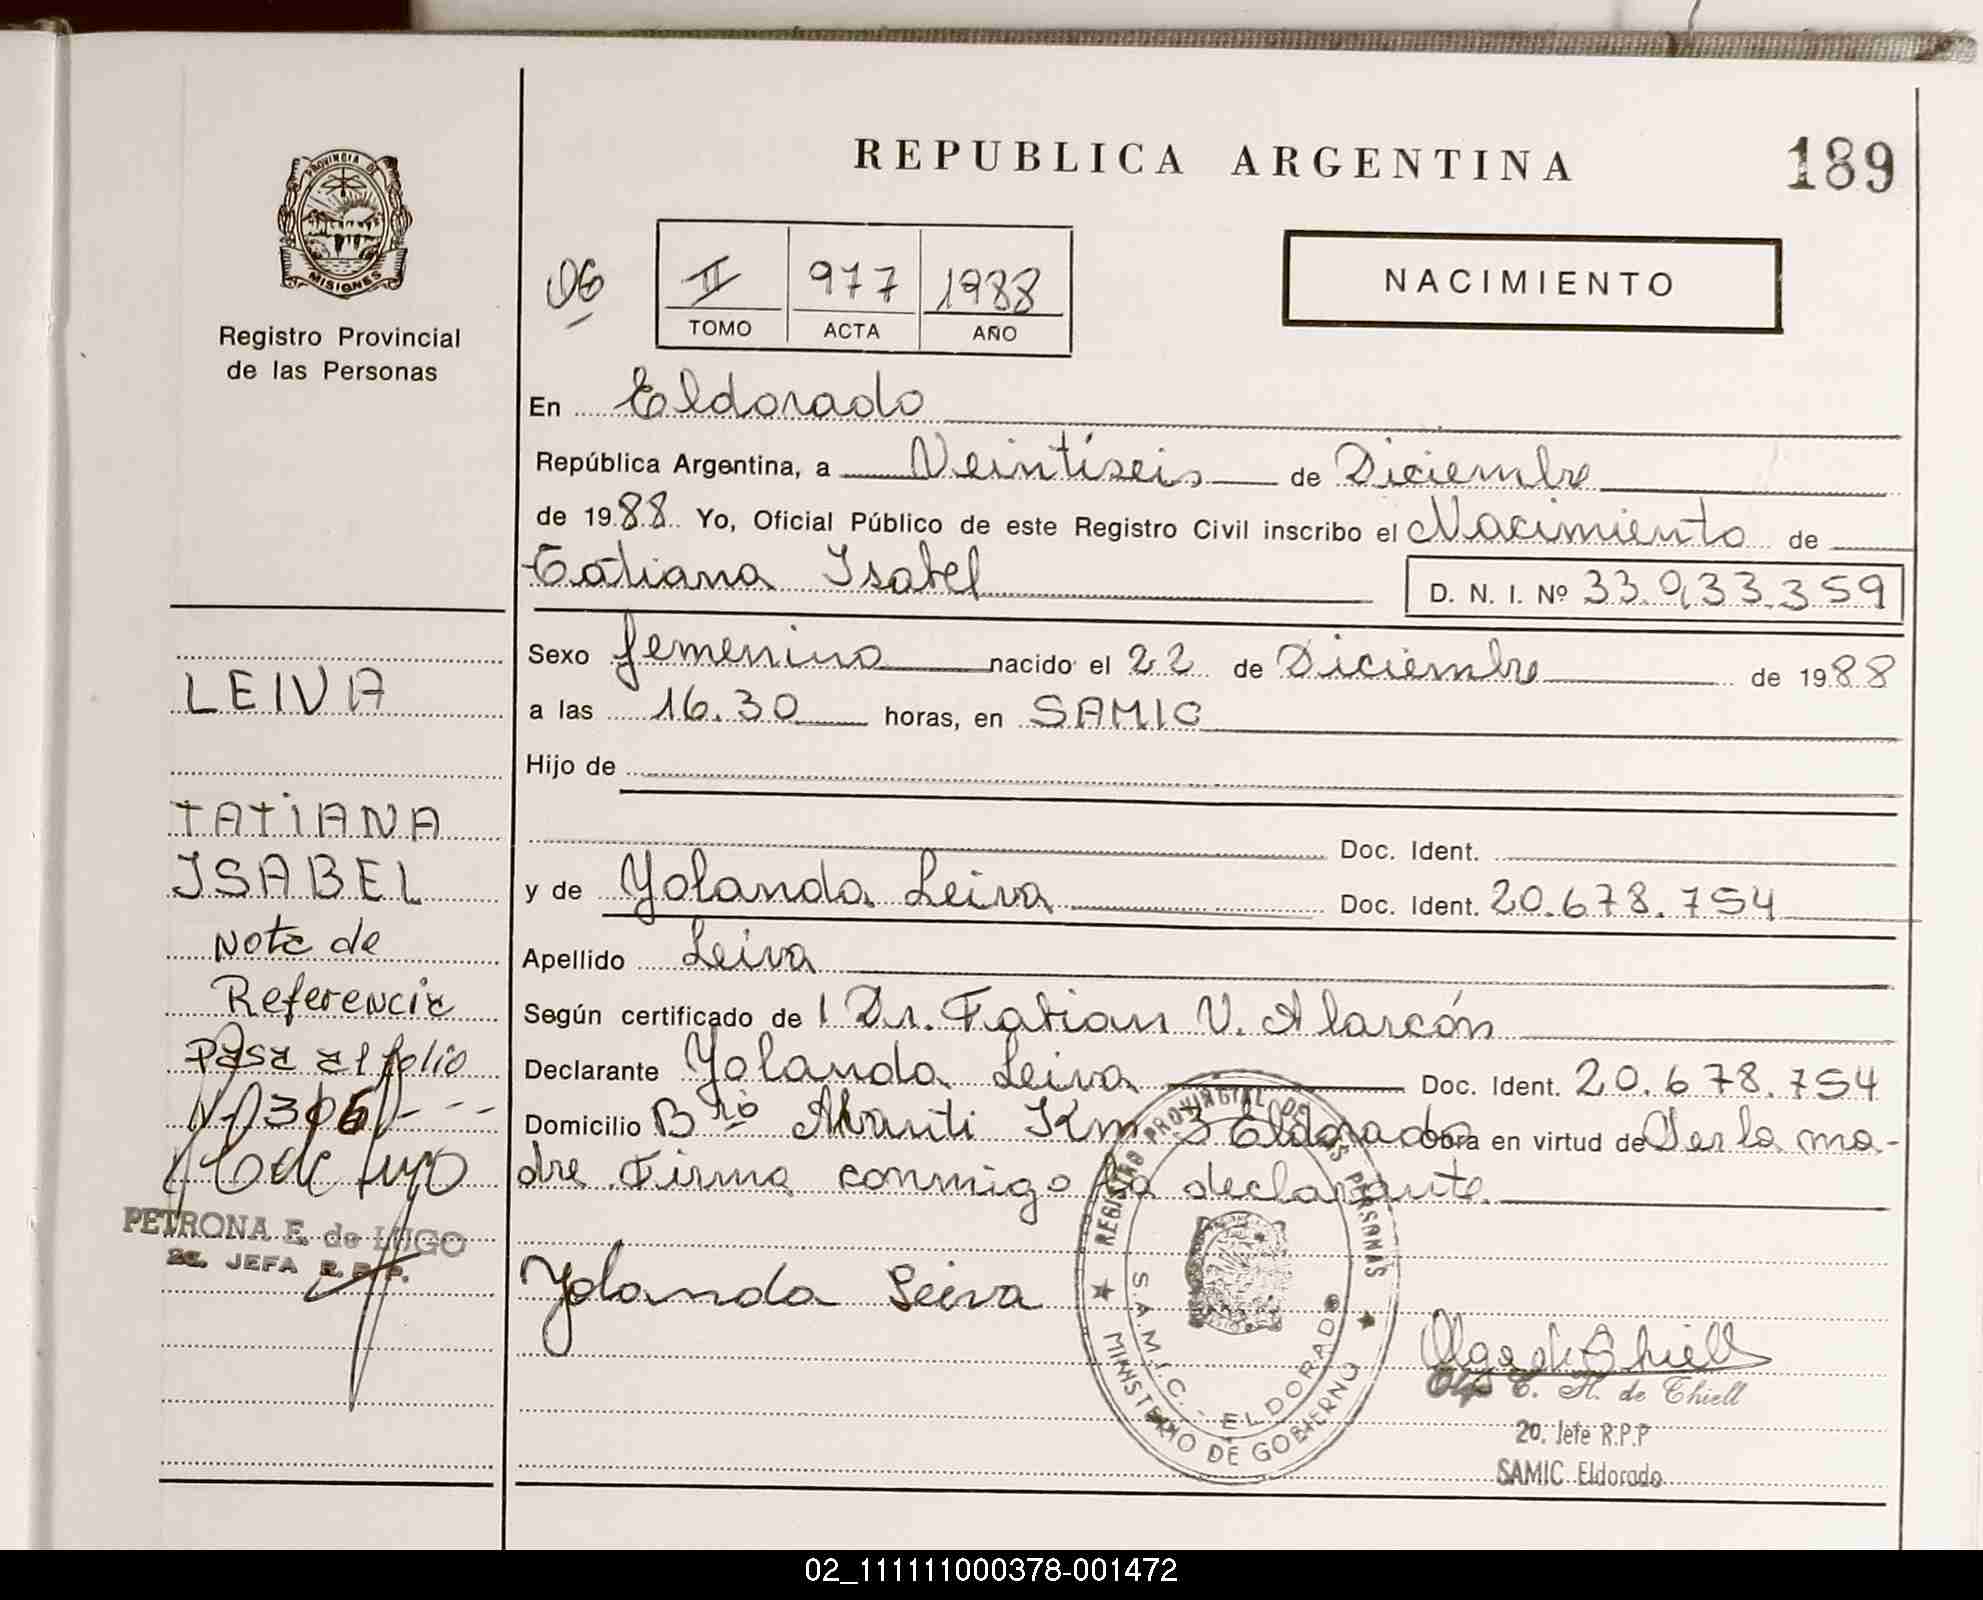 REPUBLICA ARGENTINA
189
PROVINCIA DE
MISIONES
Registro Provincial
de las Personas
06
II 977 1988
TOMO ACTA AÑO
NACIMIENTO
En Eldorado
República Argentina, a Veintiseis de Diciembre
de 1988 Yo, Oficial Público de este Registro Civil inscribo el Nacimiento de
Tatiana Isabel D. N. I. Nº 33.933.359
Sexo femenino nacido el 22 de Diciembre de 1988
a las 16.30 horas, en SAMIC
Hijo de
Doc. Ident.
y de Yolanda Leiva Doc. Ident. 20.678.754
Apellido Leiva
Según certificado de l Dr. Fabian V. Alarcón
Declarante Yolanda Leiva Doc. Ident. 20.678.754
Domicilio Bro Km 3 Eldorado Obra en virtud de Ser la ma-
dre Firma conmigo la declarante
Yolanda Leiva
LEIVA
TATIANA
ISABEL
Nota de
Referencia
Pasa al folio
Nº 306 ---
PETRONA E. de LUGO
2a. JEFA R.P.P.
REGISTRO PROVINCIAL DE LAS PERSONAS
S.A.M.I.C. - ELDORADO
MINISTERIO DE GOBIERNO
Olga de Thiell
Olga E. H. de Thiell
20. Jefe R.P.P
SAMIC Eldorado
02_111111000378-001472